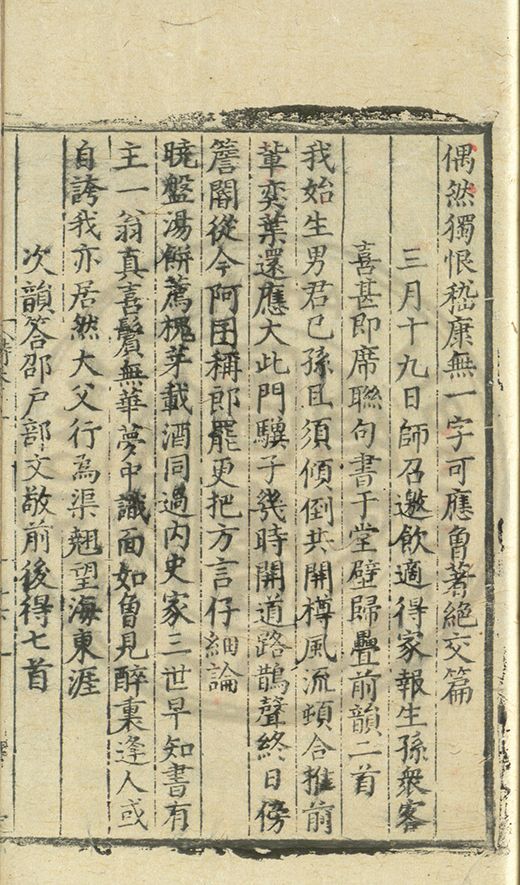 偶然獨恨嵇康無一字可應曾著絕交篇
三月十九日師召邀飲適得家報生孫衆客
喜甚即席聯句書于堂壁歸疊前韻二首
我始生男君已孫且須傾倒共開樽風流頓合推前
輩奕葉還應大此門驥子幾時開道路鵲聲終日傍
簷閤從今阿囝稱郎罷更把方言仔細論
曉盤湯餅薦槐芽載酒同過内史家三世早知書有
主一翁真喜鬢無華夢中識面如曾見醉裏逢人或
自誇我亦居然大父行爲渠翹望海東涯
次韻答邵户部文敬前後得七首